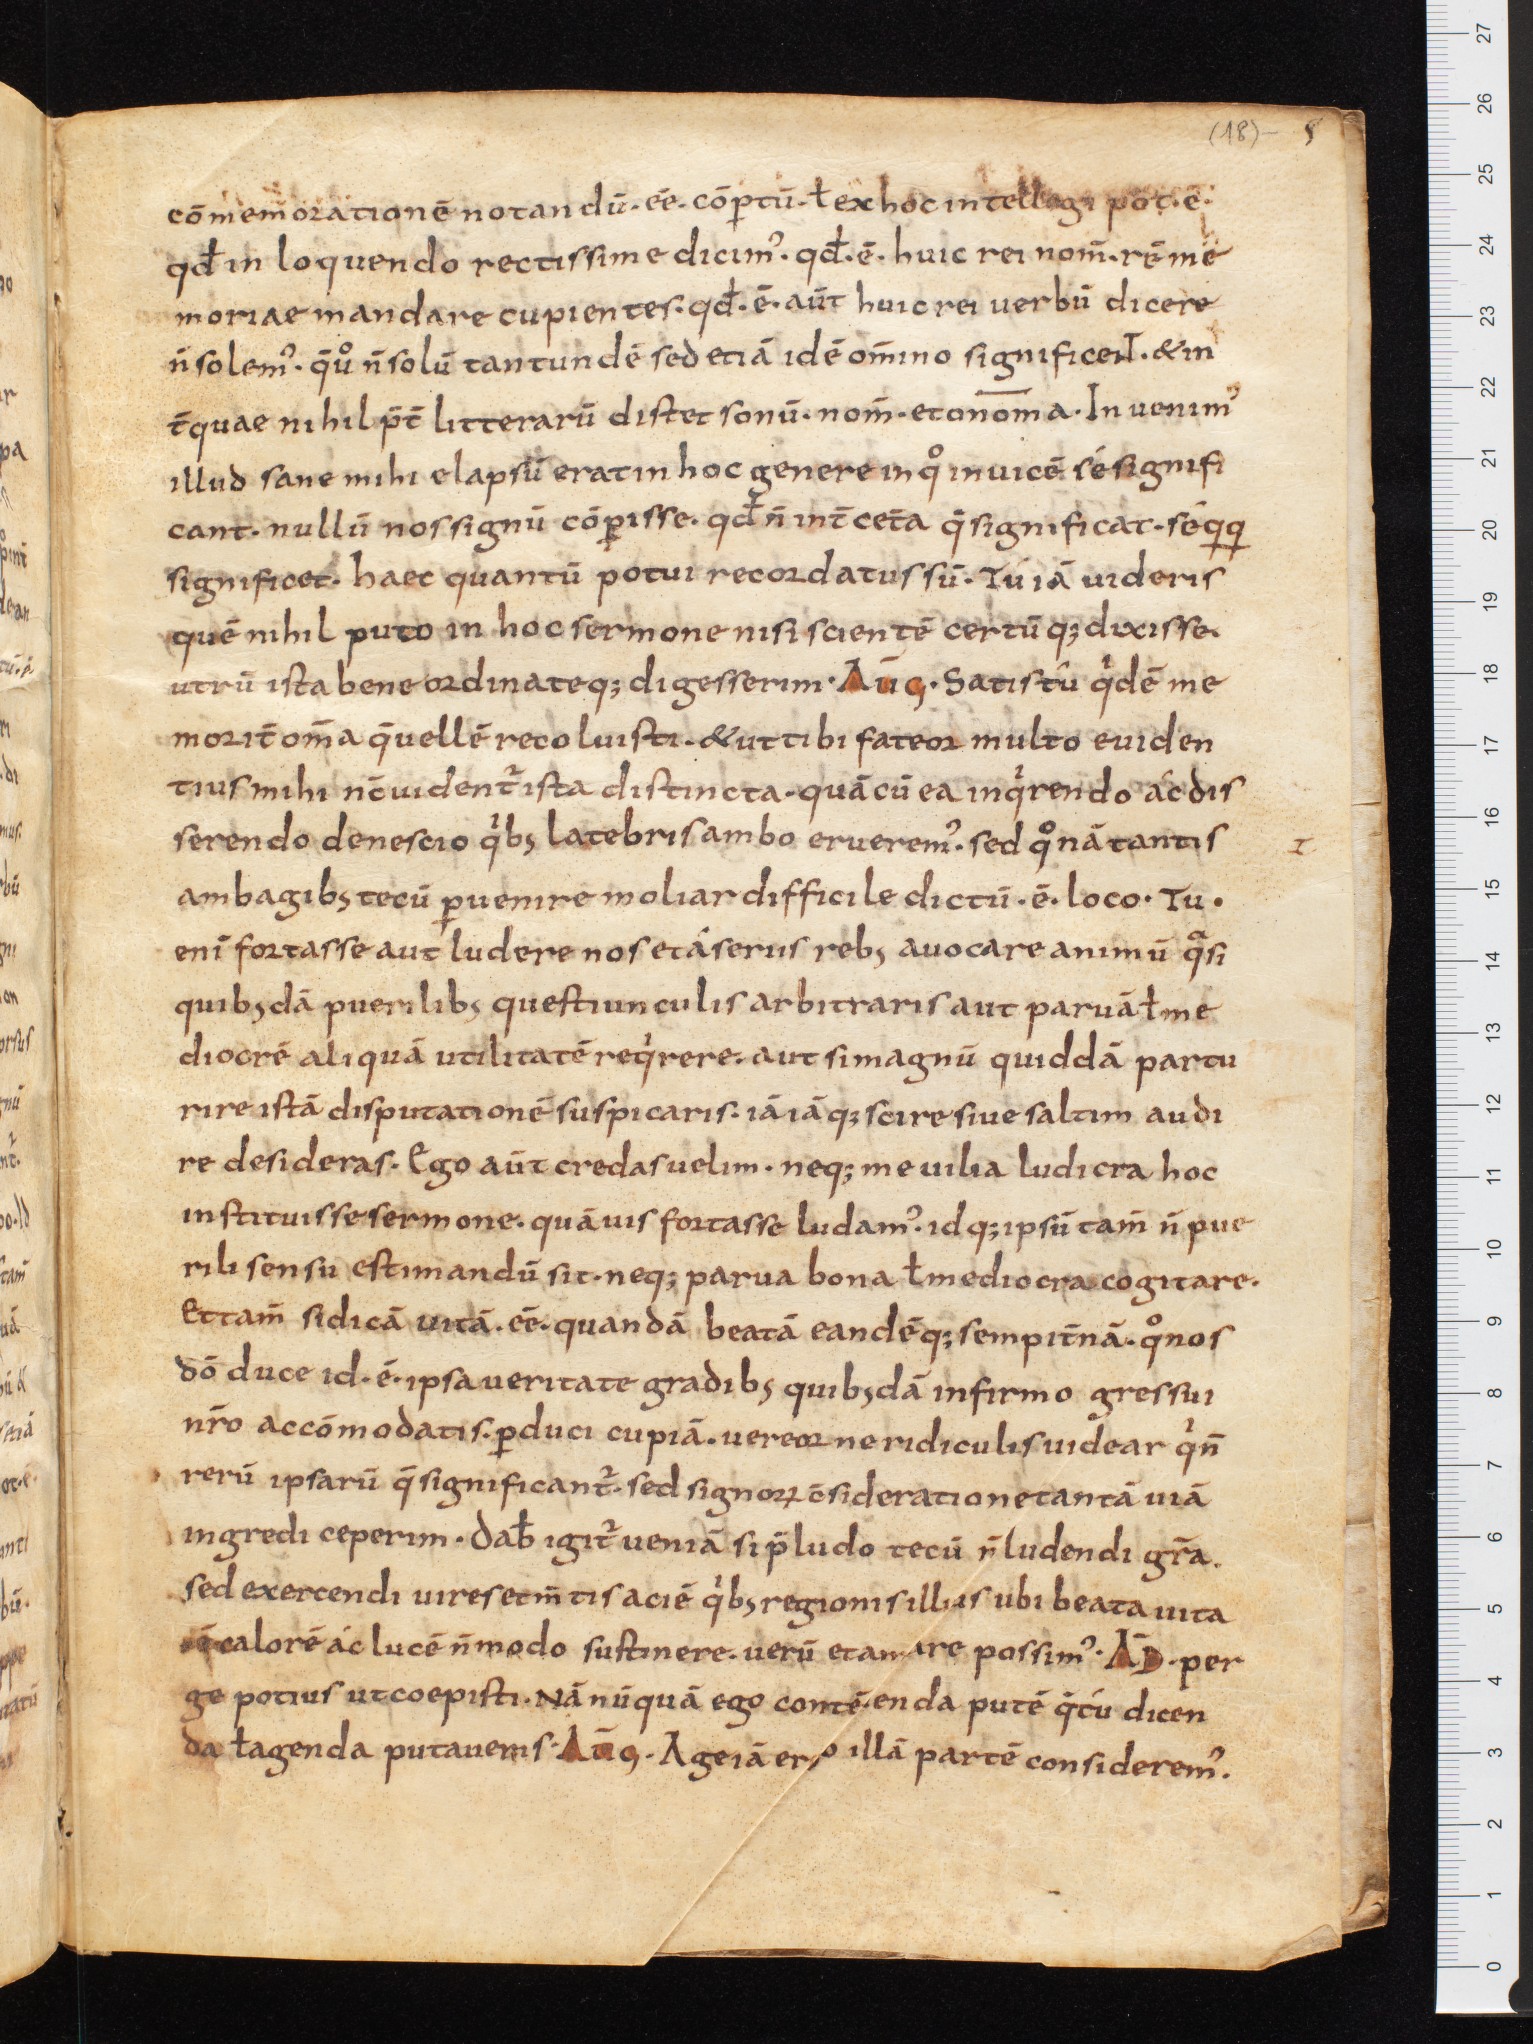 (18)
cōmemorationē notandū · eē · cōꝑtū · ł ex hoc intellegi pot · ē ·
qđ in loquendo rectissime dicim᾽ · qđ · ē · huic rei nom̄ · rē me
moriae mandare cupientes · qđ · ē · aūt huic rei verbū dicere
n̄ solem᾽ · q̄uͦ n̄ solū tantundē sed etiā idē om̄ino significent · & in
t̄ quae nihil p̄t̄ litterarū distet sonū · nom̄ · et onoma · Invenim᾽
illud sane mihi elapsū erat in hoc genere in qͦ invicē sé signifi
cant · nullū nos signū cōꝑisse · qđ n̄ int̄ cet̄a q̄ significat · sé qͅqͅ
significet · haec quantū potui recordatus sū · Tú iā uideris
quē nihil puto in hoc sermone nisi scientē certūq; dixisse ·
utrū ista bene ordinateq; digesserim · AūG · Satis tú qͥdē me
morit̄ om̄a q̄ vellē recoluisti · & ut tibi fateor multo eviden
tius mihi nc̄ uident᷑ ista distincta · quā cū ea inqͥrendo ác dis
serendo de nescio qͥbꝫ latebris ambo erverem᾽ · sed qͦnā tantis
I
ambagibꝫ tecū ꝑvenire moliar difficile dictū · ē · loco · Tu ·
enī fortasse aut ludere nos et á seriis rebꝫ avocare animū qͣsi
quibꝫdā puerilibꝫ questiunculis arbitraris aut parvā ł me
diocrē aliquā utilitatē reqͥrere · aut si magnū quiddā partu
rire istā disputationē suspicaris · iā iāq; scire sive saltim audi
re desideras · Ego aūt credas velim · neq; me vilia ludicra hoc
instituisse sermone · quāvis fortasse ludam᾽ · idq; ipsū tam̄ n̄ pue
rili sensu estimandū sit · neq; parva bona ł mediocra cogitare ·
Et tam̄ si dicā vitā · eē · quandā beatā eandēq; sempit̄nā · qͦ nos
dō duce id · ē · ipsa veritate gradibꝫ quibꝫdā infirmo gressui
nr̄o accōmodatis · ꝑduci cupiā · vereor ne ridiculis uidear qͥ n̄
rerū ipsarū q̄ significant᷑ · sed signoꝝ c̄sideratione tantā viā
ingredi ceperim · Dab̄ igit᷑ veniā si p̄ludo tecū n̄ ludendi gr̄a ·
sed exercendi vires et m̄tis aciē qͥbꝫ regionis illius ubi beata vita
ē calorē ác lucē n̄modo sustinere · verū et amare possim᾽ · AD · per
ge potius ut coepisti · Nā nūquā ego contēenda putē q̄ tú dicen
da ł agenda putaveris · AūG · Age iā ergo illā partē considerem᾽ ·